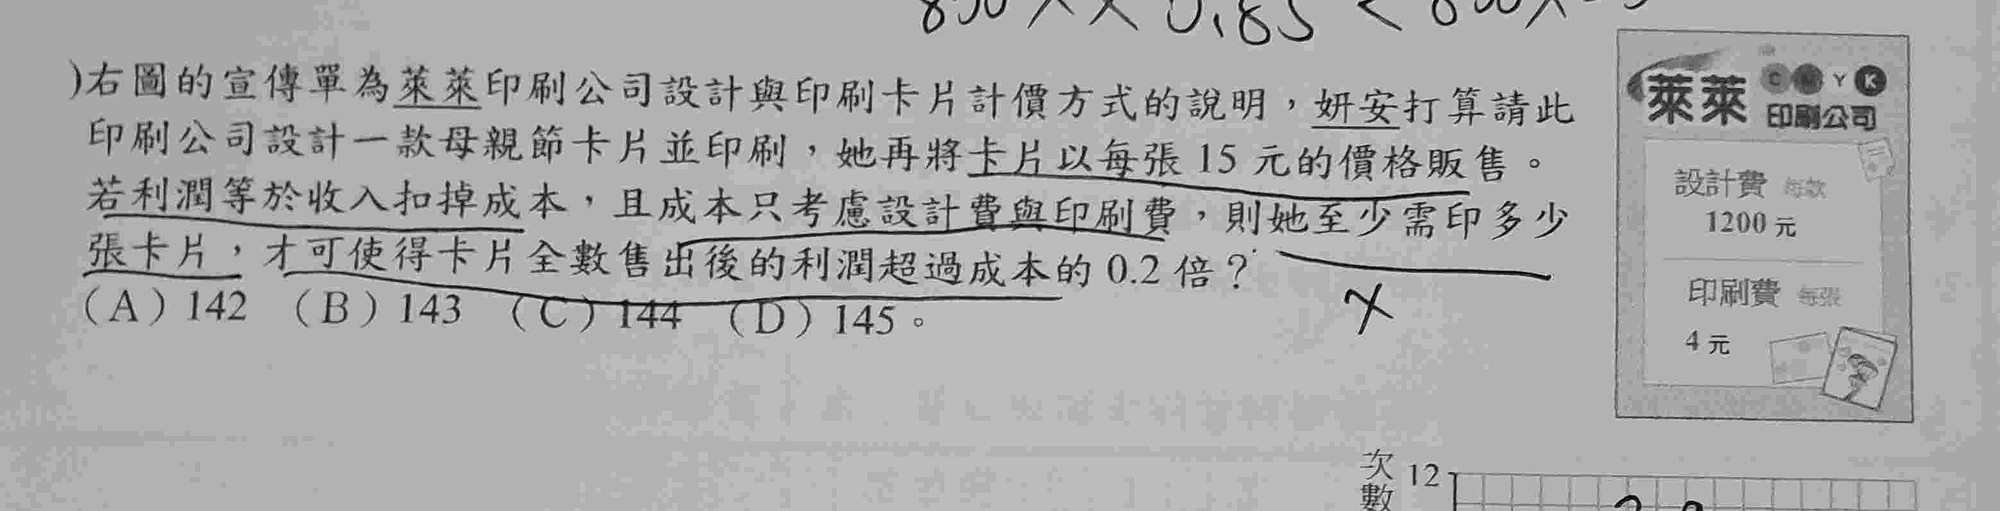 )右圖的宣傳單為萊萊印刷公司設計與印刷卡片計價方式的說明，妍安打算請此
印刷公司設計一款母親節卡片並印刷，她再將卡片以每張 15 元的價格販售。
若利潤等於收入扣掉成本，且成本只考慮設計費與印刷費，則她至少需印多少
張卡片，才可使得卡片全數售出後的利潤超過成本的 0.2 倍？
（A）142 （B）143 （C）144 （D）145。
x
萊萊 C M Y K
印刷公司
設計費 每款
1200 元
印刷費 每張
4 元
次數
12